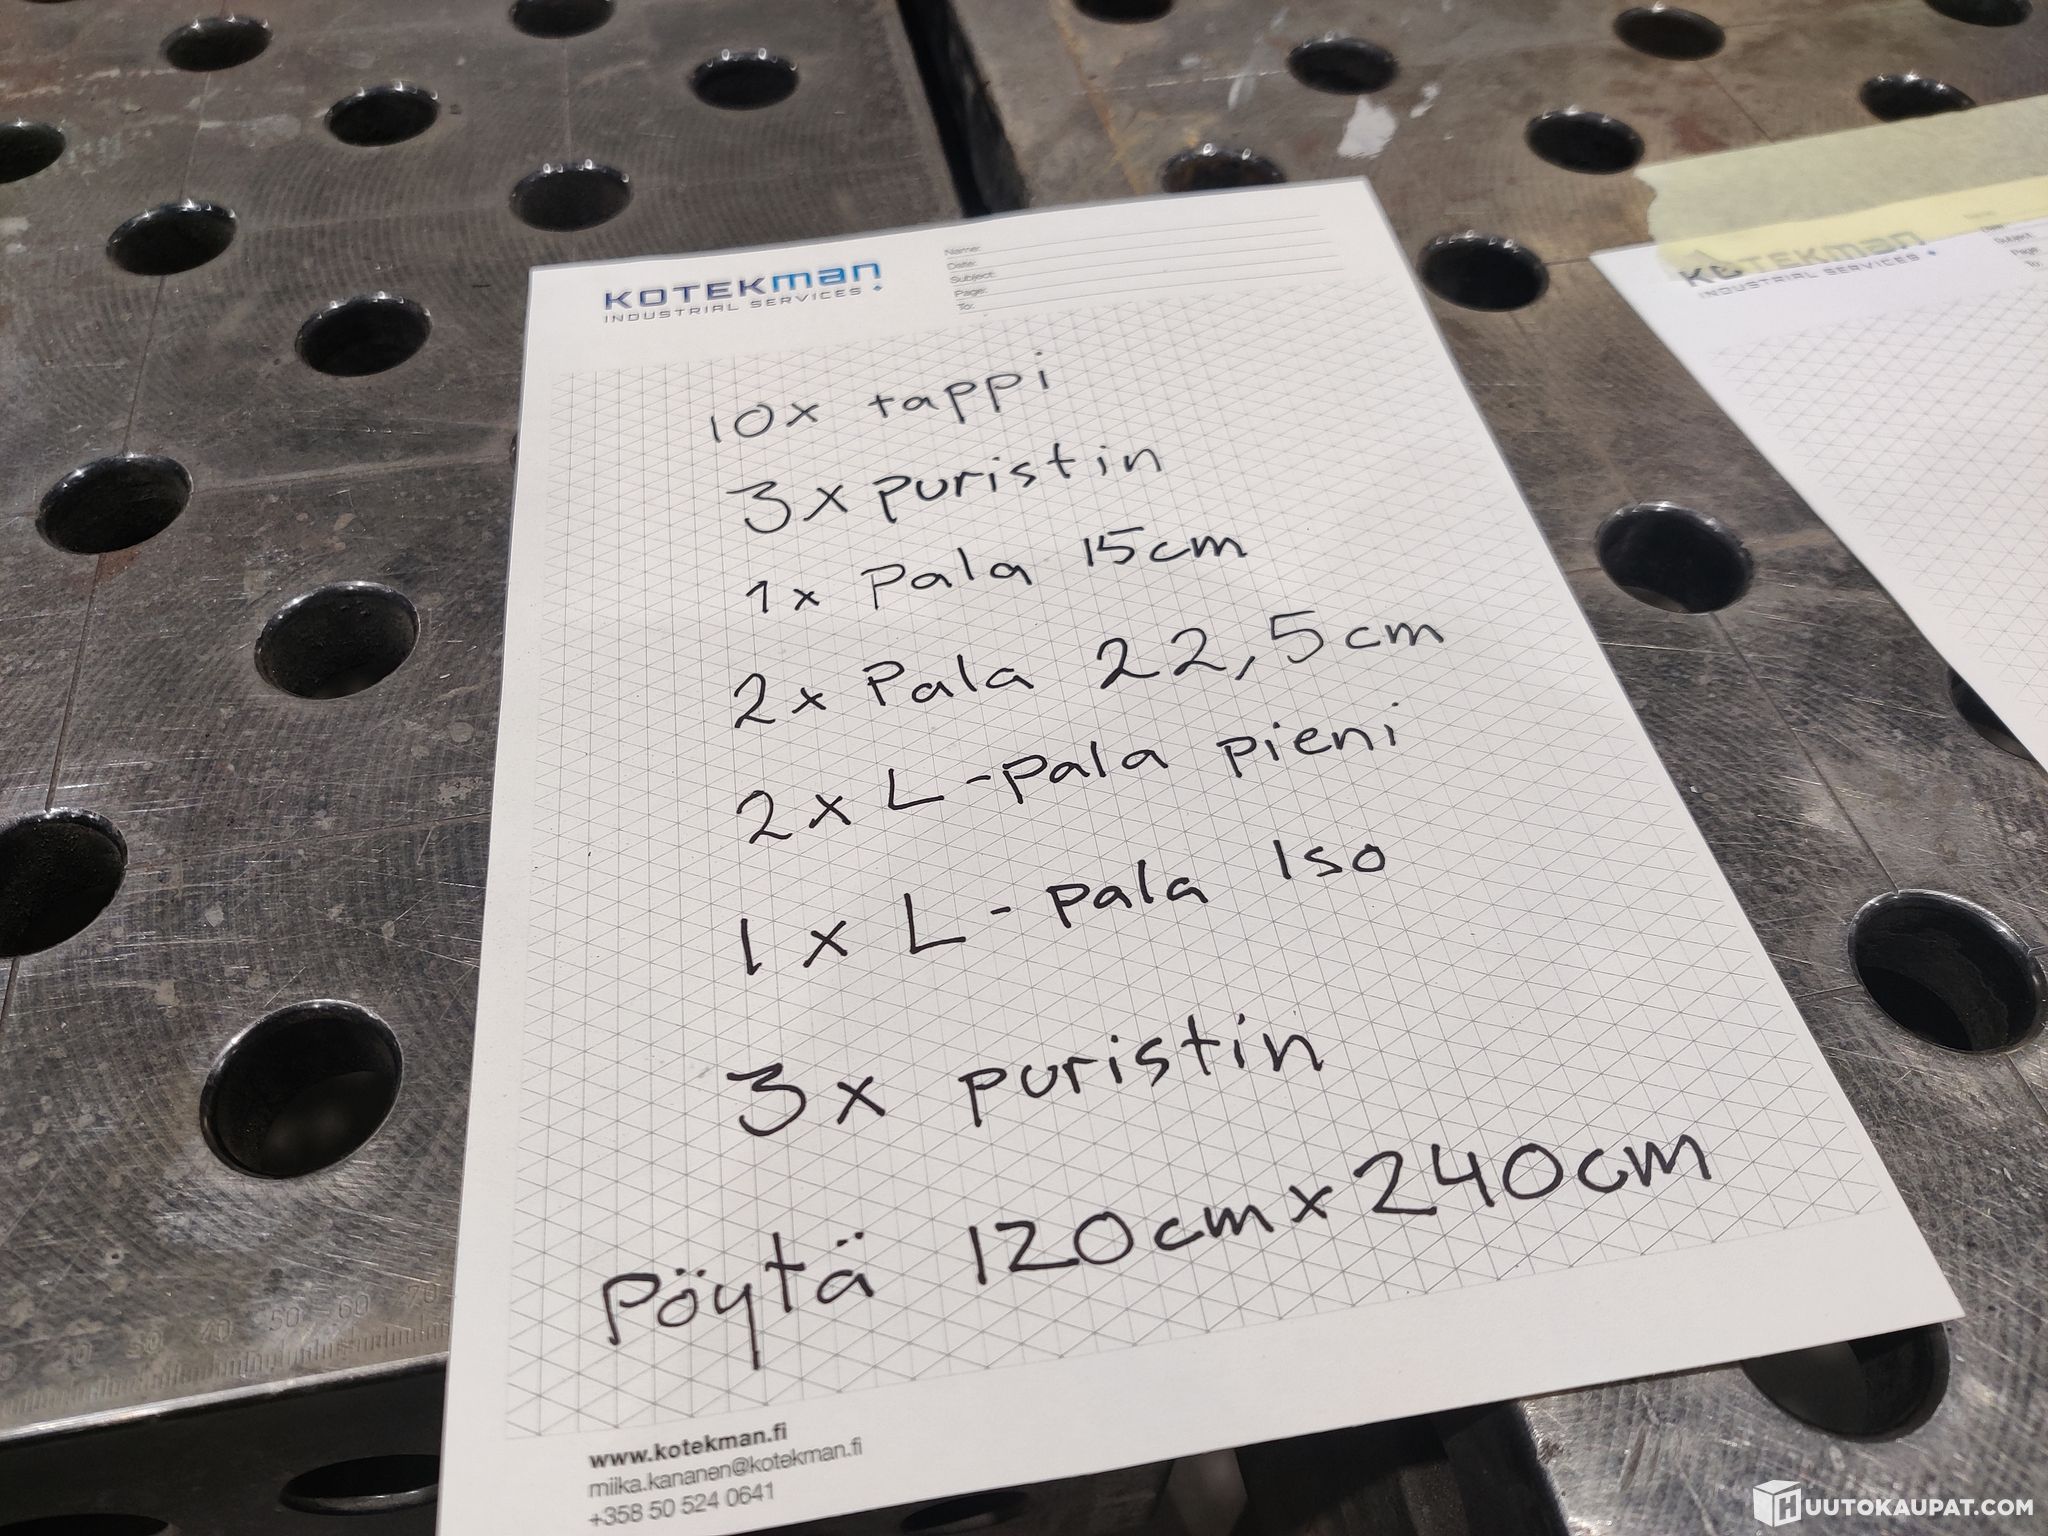 KOTEKMAN
INDUSTRIAL SERVICES
Name:
Date:
Subject:
Page:
To:
10x tappi
3x puristin
1x Pala 15cm
2x Pala 22,5cm
2x L-pala pieni
1x L-pala Iso
3x puristin
Pöytä 120cm x 240cm
www.kotekman.fi
miika.kananen@kotekman.fi
+358 50 524 0641
KOTEKMAN
INDUSTRIAL SERVICES
Subject:
Page:
To:
40 50 60 70
HUUTOKAUPAT.COM